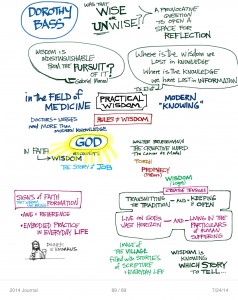 DOROTHY
BASS
WAS THAT
WISE
OR
UNWISE?
A PROVOCATIVE
QUESTION
TO OPEN A
SPACE FOR
REFLECTION
WISDOM IS
INDISTINGUISHABLE
FROM THE PURSUIT?
OF IT
Gabriel Marcel
Where is the WISDOM we
LOST in KNOWLEDGE?
Where is the KNOWLEDGE
we have LOST in INFORMATION
T.S. Eliot
in the FIELD of
MEDICINE
PRACTICAL
WISDOM
MODERN
"KNOWING"
DOCTORS + NURSES
need MORE than
MODERN KNOWLEDGE
RULES + WISDOM
GOD
IN FAITH
→ WISDOM
THE STORY of JOB
WALTER BRUEGGEMANN
THE CREATIVE WORD
TORAH
PROPHECY
WISDOM
SIGNS of FAITH
FORMATION
• AWE + REVERENCE
• EMBODIED PRACTICE
in EVERYDAY LIFE
CREATIVE TENSIONS
TRANSMITTING
the TRADITION
AND
KEEPING
it OPEN
LIVING ON GOD'S
VAST HORIZON
AND
LIVING IN THE
PARTICULARS
OF HUMAN
SUFFERING
IMAGE of
THE VILLAGE
FILLED with STORIES
of SCRIPTURE
+ EVERYDAY LIFE
WISDOM is
KNOWING
WHICH STORY
to TELL...
2014 Journal
7/24/14